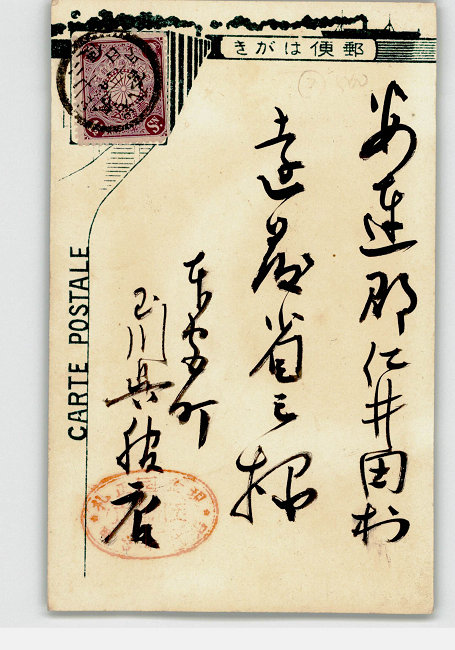 郵便はがき
CARTE POSTALE
安達郡仁井田村
遠藤省三様
本宮町
玉川呉服店